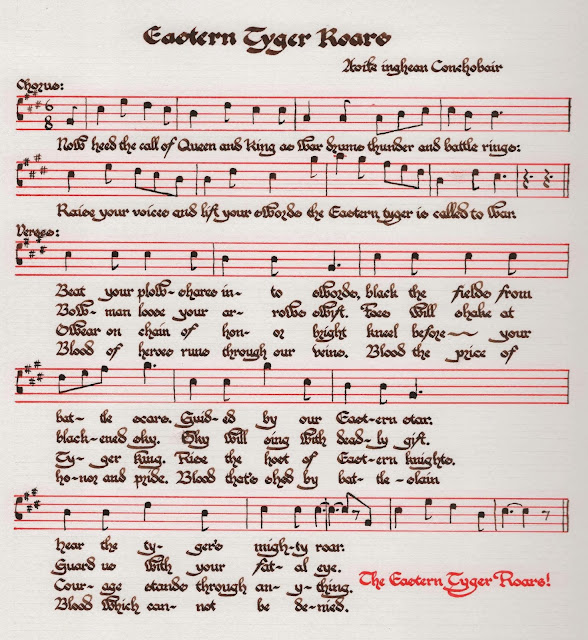 Eastern Tyger Roars
Aoife inghean Conchobair
Chorus:
6
8
Now heed the call of Queen and King as war drums thunder and battle rings:
Raise your voices and lift your swords the Eastern tyger is called to war.
Verses:
Beat your plow-shares in- to swords, black the fields from
Bow- man loose your ar- rows swift. Foes will shake at
Swear on chain of hon- or bright kneel before~ your
Blood of heroes runs through our veins. Blood the price of
bat- tle scars. Guid-ed by our East-ern star.
black-ened sky. Sky will sing with dead-ly gift.
Ty- ger King. Rise the host of East-ern knights.
ho-nor and pride. Blood that's shed by bat- tle-slain
hear the ty- ger's migh-ty roar.
Guard us with your fat-al eye.
Cour- age stands through an-y-thing.
Blood which can- not be de-nied.
The Eastern Tyger Roars!